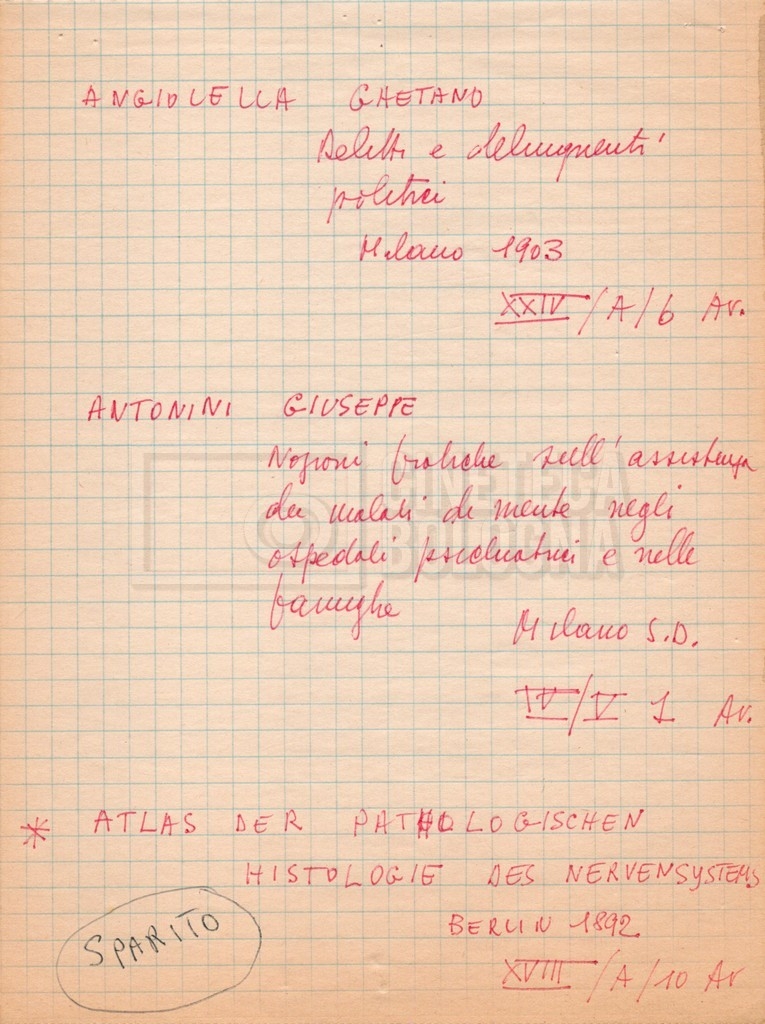 ANGIOLELLA GAETANO
Delitti e delinquenti
politici
Milano 1903
XXIV/A/6 Av.
ANTONINI GIUSEPPE
Nozioni pratiche sull'assistenza
dei malati di mente negli
ospedali psichiatrici e nelle
famiglie
CINETECA
BOLOGNA
Milano S.D.
IV/V 1 Av.
* ATLAS DER PATHOLOGISCHEN
HISTOLOGIE DES NERVENSYSTEMS
BERLIN 1892
SPARITO
XVIII/A/10 Av